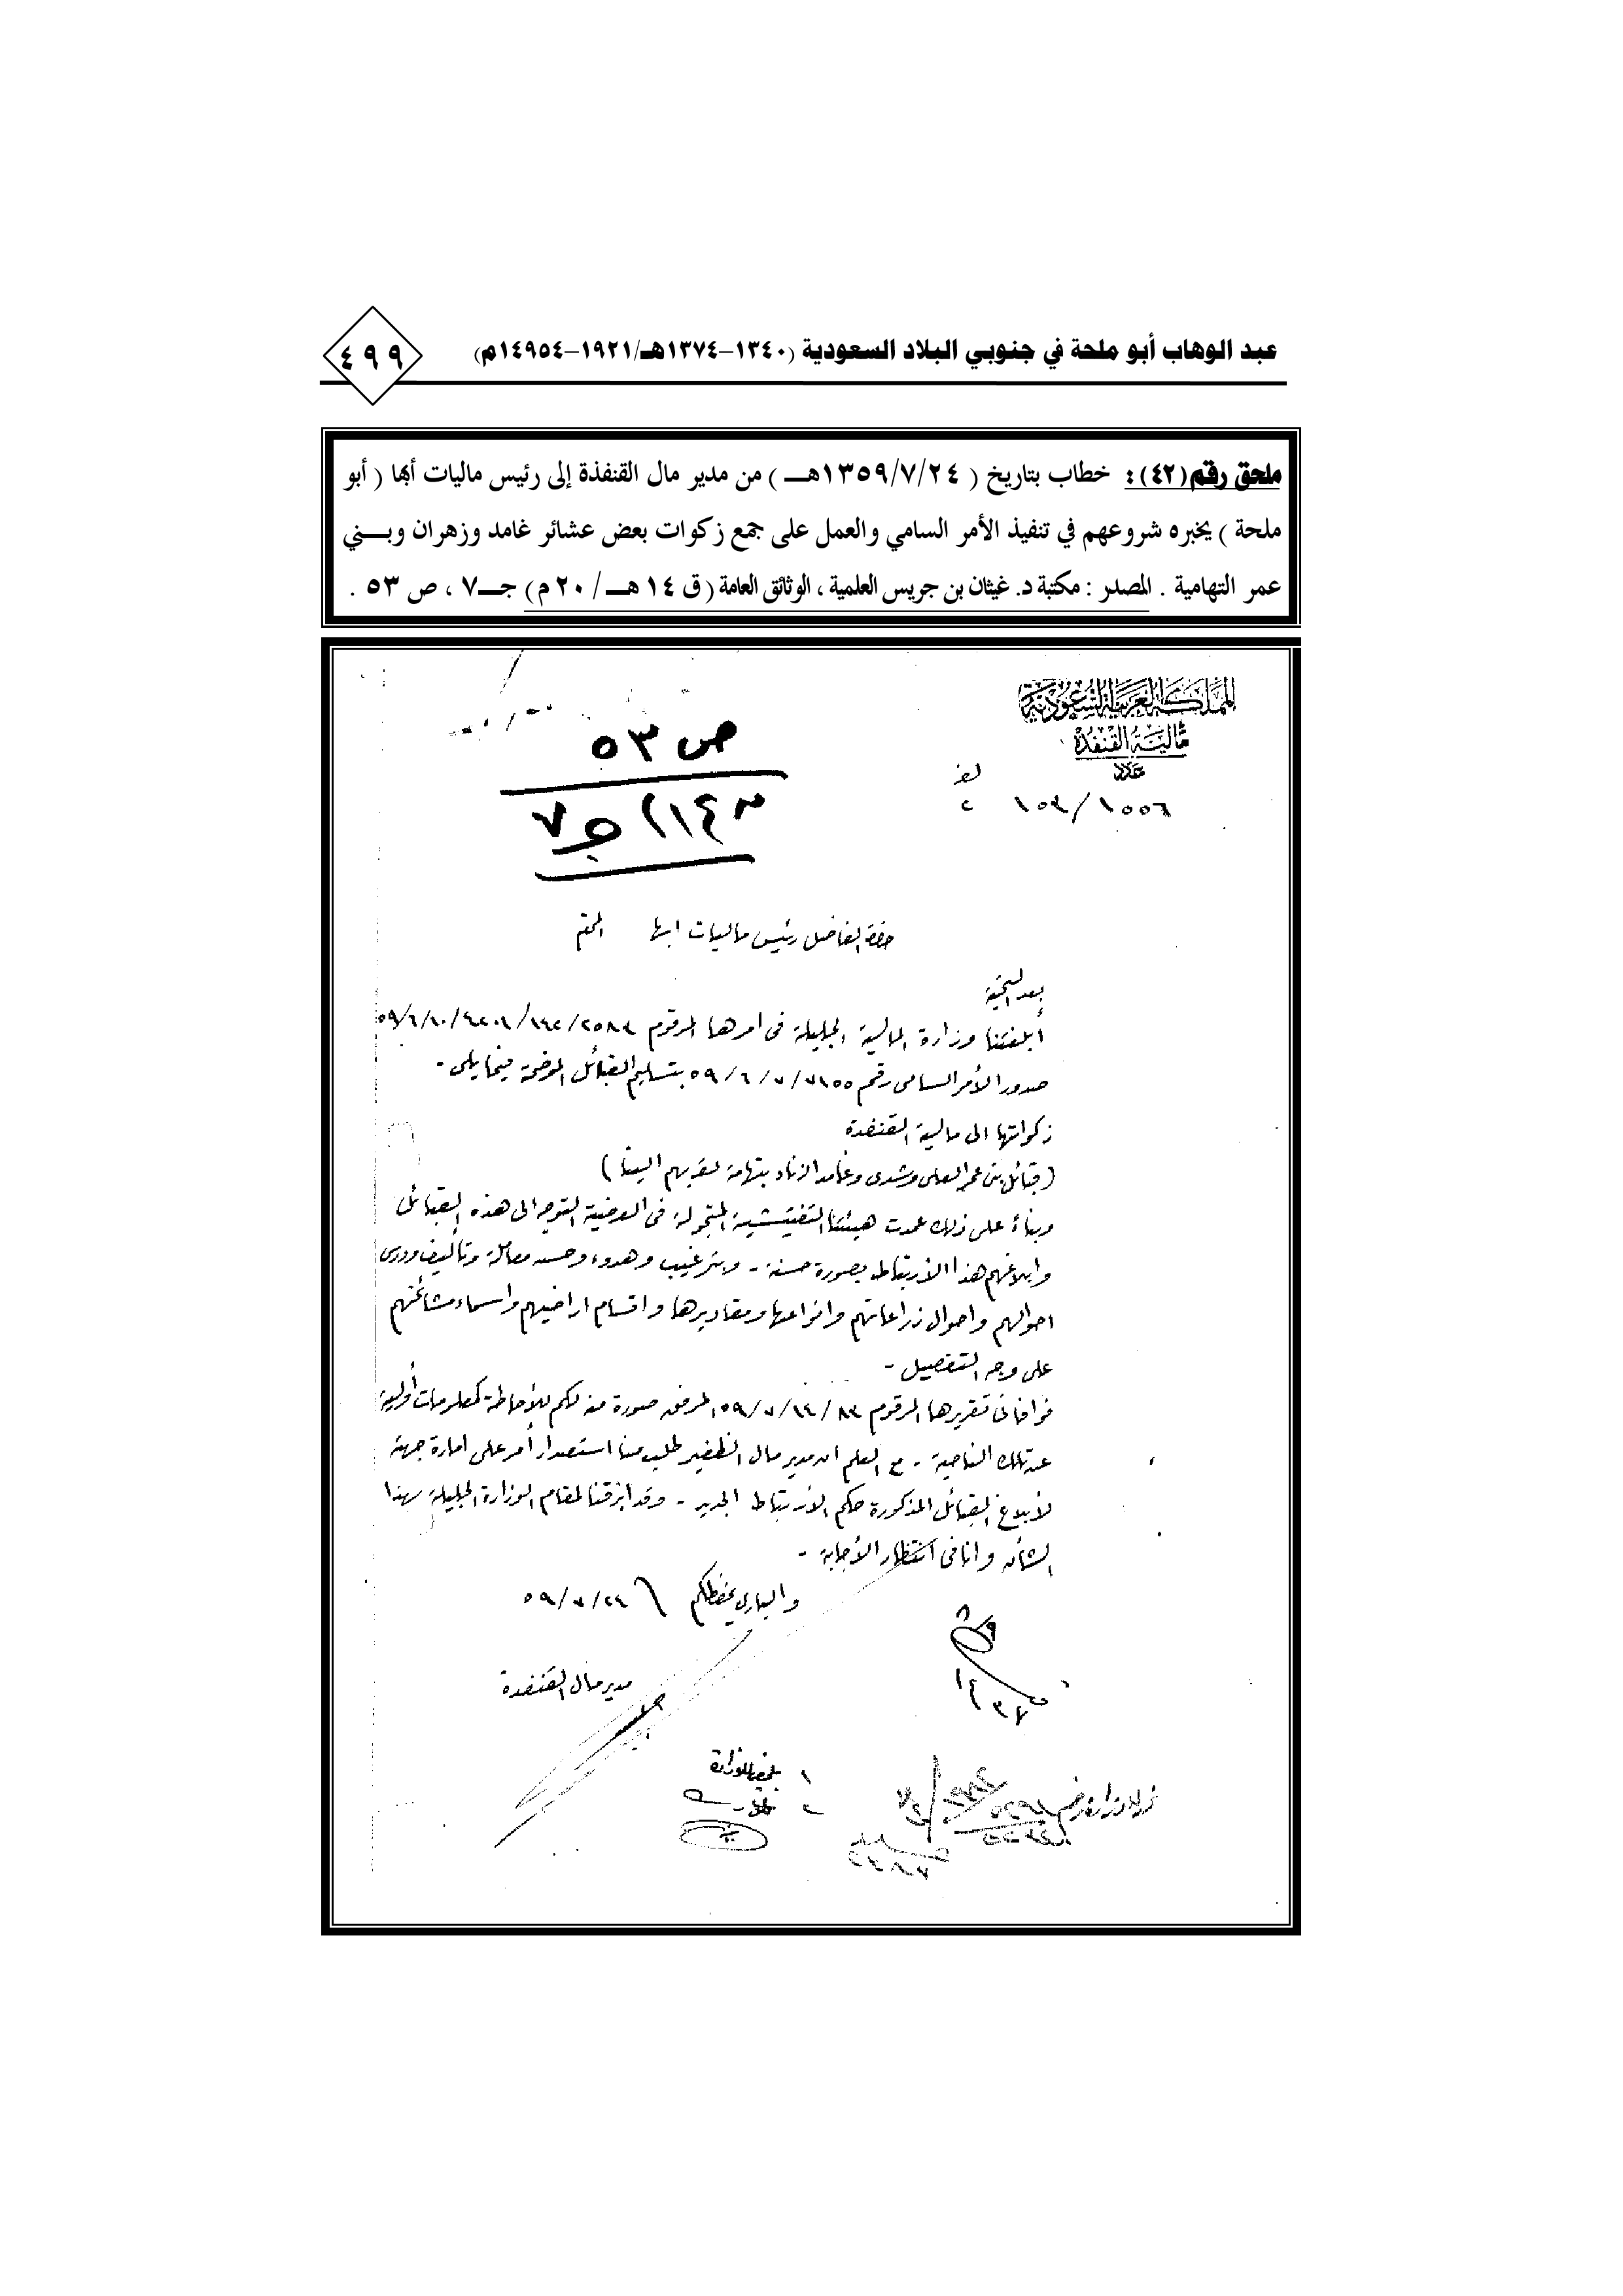 عبد الوهاب أبو ملحة في جنوبي البلاد السعودية (١٣٤٠-١٣٧٤هـ/١٩٢١-١٤٩٥٤م)
٤٩٩
ملحق رقم(٤٢): خطاب بتاريخ ( ١٣٥٩/٧/٢٤هـ ) من مدير مال القنفذة إلى رئيس ماليات أبها ( أبو
ملحة ) يخبره شروعهم في تنفيذ الأمر السامي والعمل على جمع زكوات بعض عشائر غامد وزهران وبني
عمر التهامية . المصدر : مكتبة د. غيثان بن جريس العلمية ، الوثائق العامة ( ق ١٤ هـ / ٢٠ م ) جـ٧ ، ص ٥٣ .
المملكة العربية السعودية
مالية القنفذة
عدد
ص ٥٣
حضرة الفاضل رئيس ماليات ابها المحترم
بعد التحية
أبلغتنا وزارة المالية الجليلة في امرها المرقوم
صدور الأمر السامي رقم ٥٩/٦/٧/٧١٥٥ بتسليم القبائل الموضحة فيما يلي -
زكواتها الى مالية القنفذة
(قبائل بني عمر العلي وغامد الزناد بتهامة لقربهم الينا)
وبناءً على ذلك عمدت هيئتنا التفتيشية المتجولة في العرضية التوجه الى هذه القبائل
وابلاغهم هذا الأرتباط بصورة حسنة - وبترغيب وهدوء وحسن معاملة وتأليف
احوالهم واحوال زراعاتهم وانواعها ومقاديرها واقسام اراضيهم واسماء مشائخهم
على وجه التفصيل -
فوافانا تقريرها المرقوم ٥٩/٧/١٤/٨٣ المرفق صورة منه لكم للأحاطة كمعلومات أولية
عن تلك الناحية - مع العلم ان مدير مال الظفير طلب منا استصدار أمر على امارة جهته
لأبلاغ القبائل المذكورة حكم الأرتباط الجديد - وقد ابرقنا لمقام الوزارة الجليلة بهذا
الشأن وانا في انتظار الأجابة -
والباري يحفظكم ٥٩/٧/٢٤
مدير مال القنفذة